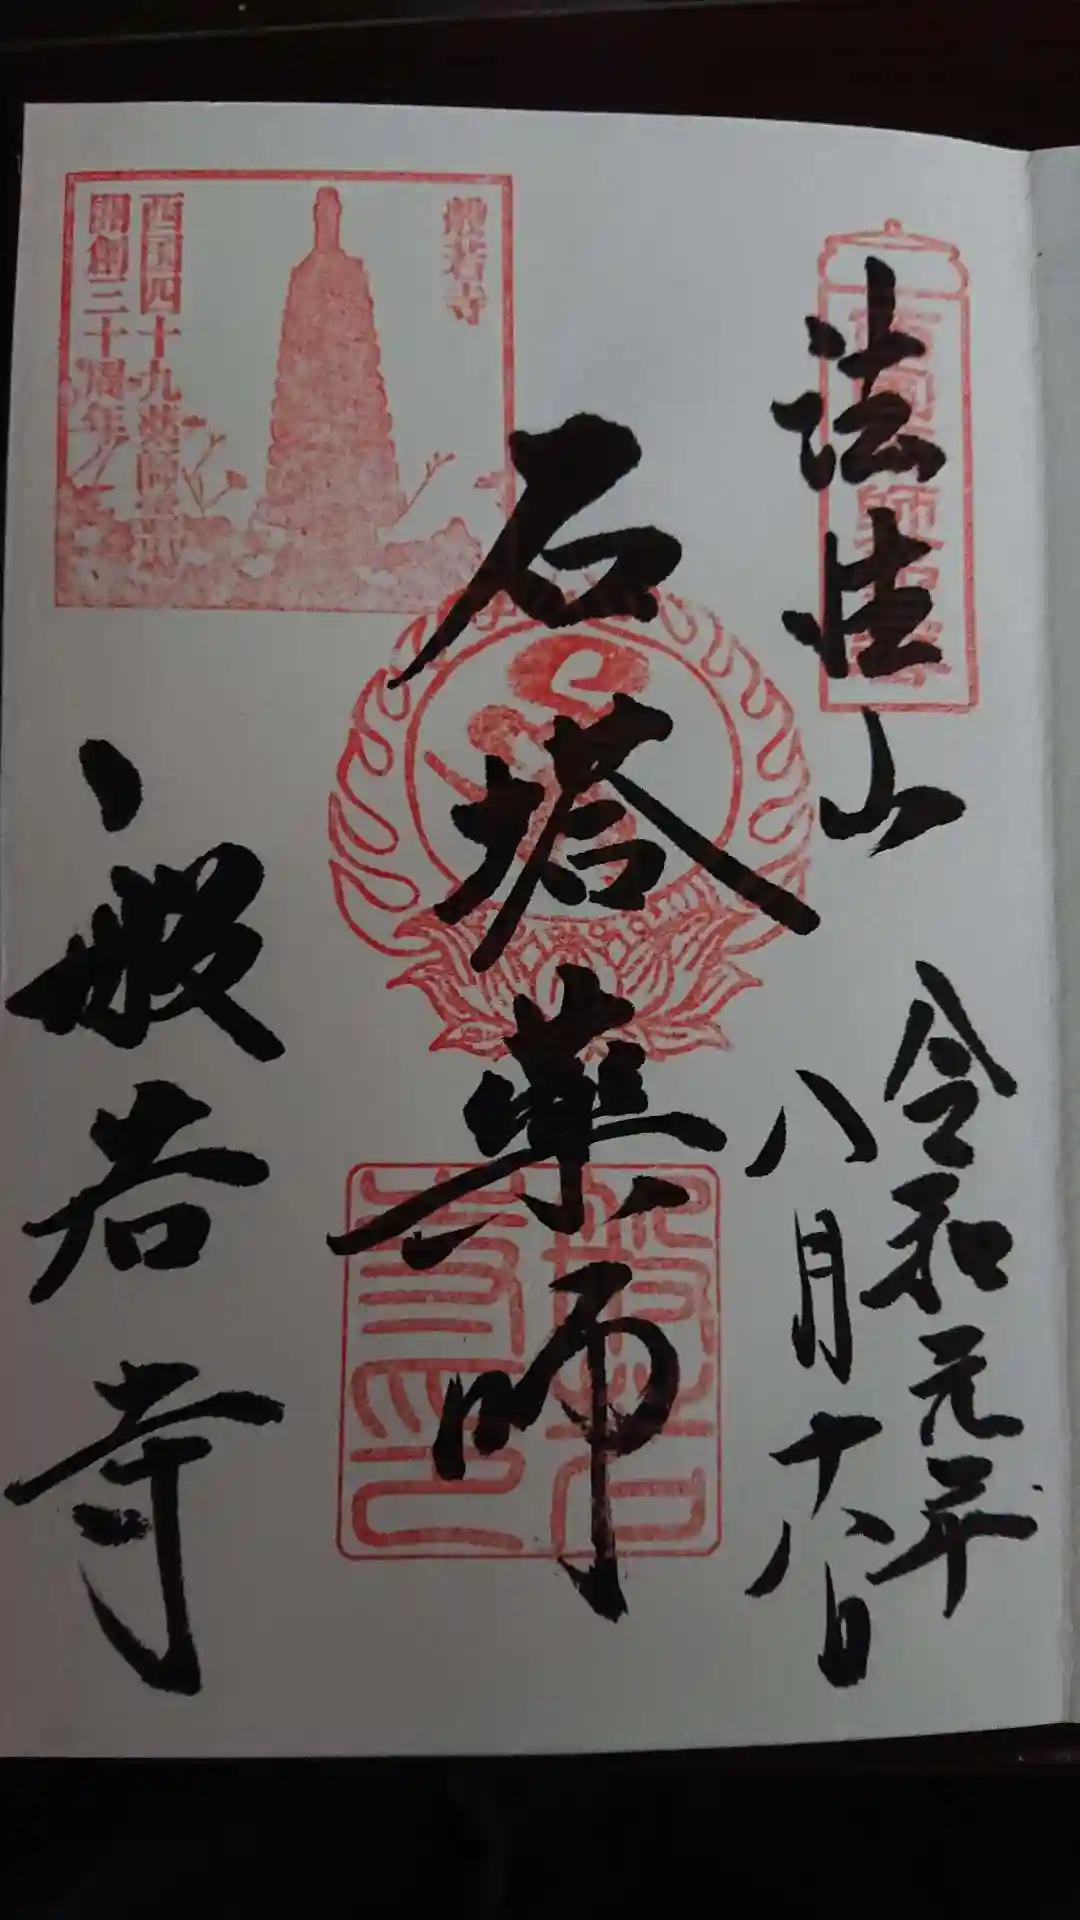 法性山
令和元年
八月十八日
石塔薬師
般若寺
般若寺
西国四十九薬師霊場
開創三十周年
般若寺印